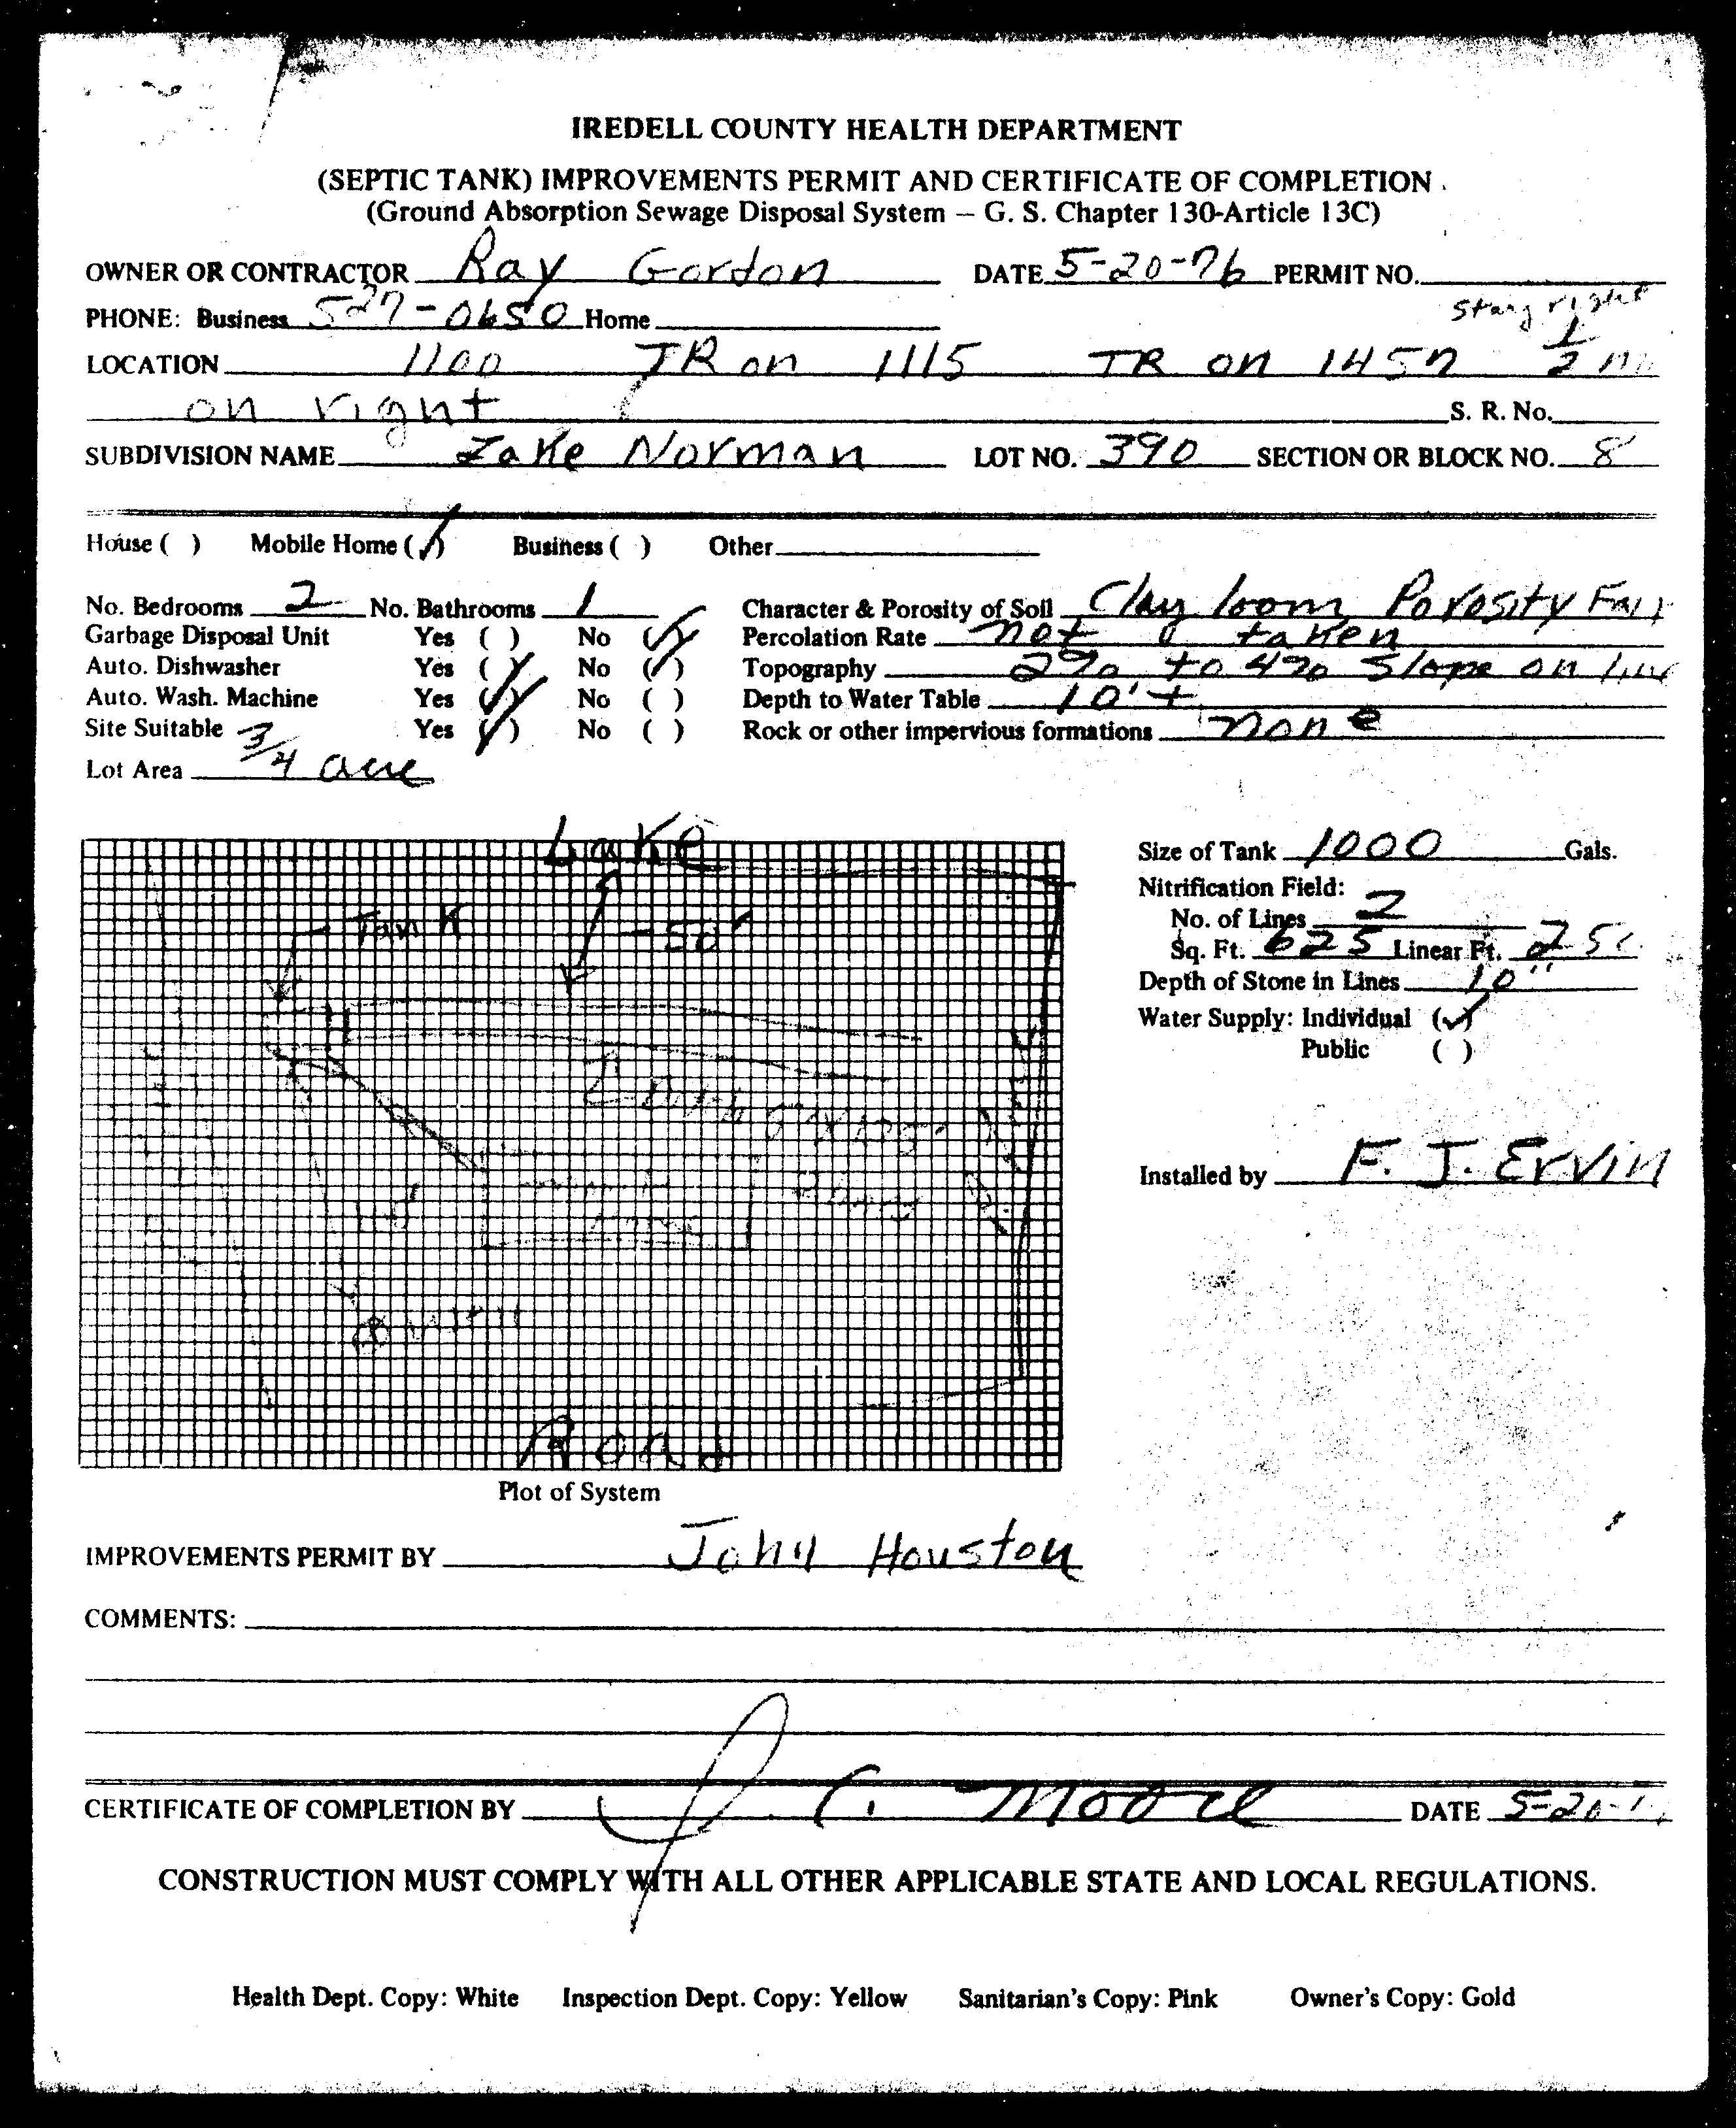 IREDELL COUNTY HEALTH DEPARTMENT
(SEPTIC TANK) IMPROVEMENTS PERMIT AND CERTIFICATE OF COMPLETION
(Ground Absorption Sewage Disposal System – G. S. Chapter 130-Article 13C)
OWNER OR CONTRACTOR Ray Gordon DATE 5-20-76 PERMIT NO.
PHONE: Business 527-0650 Home
Stay right
LOCATION 1100 TR on 1115 TR on 1457 1/2 mi
on right S. R. No.
SUBDIVISION NAME Lake Norman LOT NO. 390 SECTION OR BLOCK NO. 8
House ( ) Mobile Home (✓) Business ( ) Other
No. Bedrooms 2 No. Bathrooms 1 Character & Porosity of Soil Clay loom Porosity Fair
Garbage Disposal Unit Yes ( ) No (✓) Percolation Rate not taken
Auto. Dishwasher Yes ( ) No (✓) Topography 2% to 4% Slope on line
Auto. Wash. Machine Yes (✓) No ( ) Depth to Water Table 10'+
Site Suitable Yes (✓) No ( ) Rock or other impervious formations none
Lot Area 3/4 acre
Lake
Size of Tank 1000 Gals.
Nitrification Field:
Tank
50'
No. of Lines 2
Sq. Ft. 625 Linear Ft. 250
Depth of Stone in Lines 10"
Water Supply: Individual (✓)
Public ( )
Installed by F. J. Ervin
Road
Plot of System
IMPROVEMENTS PERMIT BY John Houston
COMMENTS:
CERTIFICATE OF COMPLETION BY J. C. Moore DATE 5-20-
CONSTRUCTION MUST COMPLY WITH ALL OTHER APPLICABLE STATE AND LOCAL REGULATIONS.
Health Dept. Copy: White Inspection Dept. Copy: Yellow Sanitarian's Copy: Pink Owner's Copy: Gold